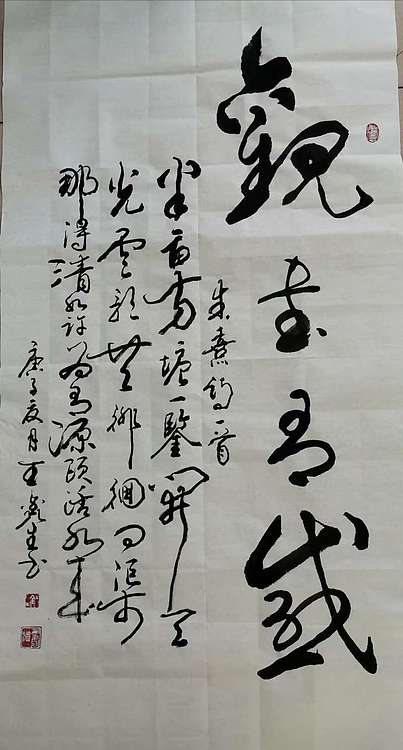 觀書有感
朱熹詩一首
半亩方塘一鑒開天
光雲影共徘徊問渠
那得清如許為有源頭活水來
庚子夏月王生書